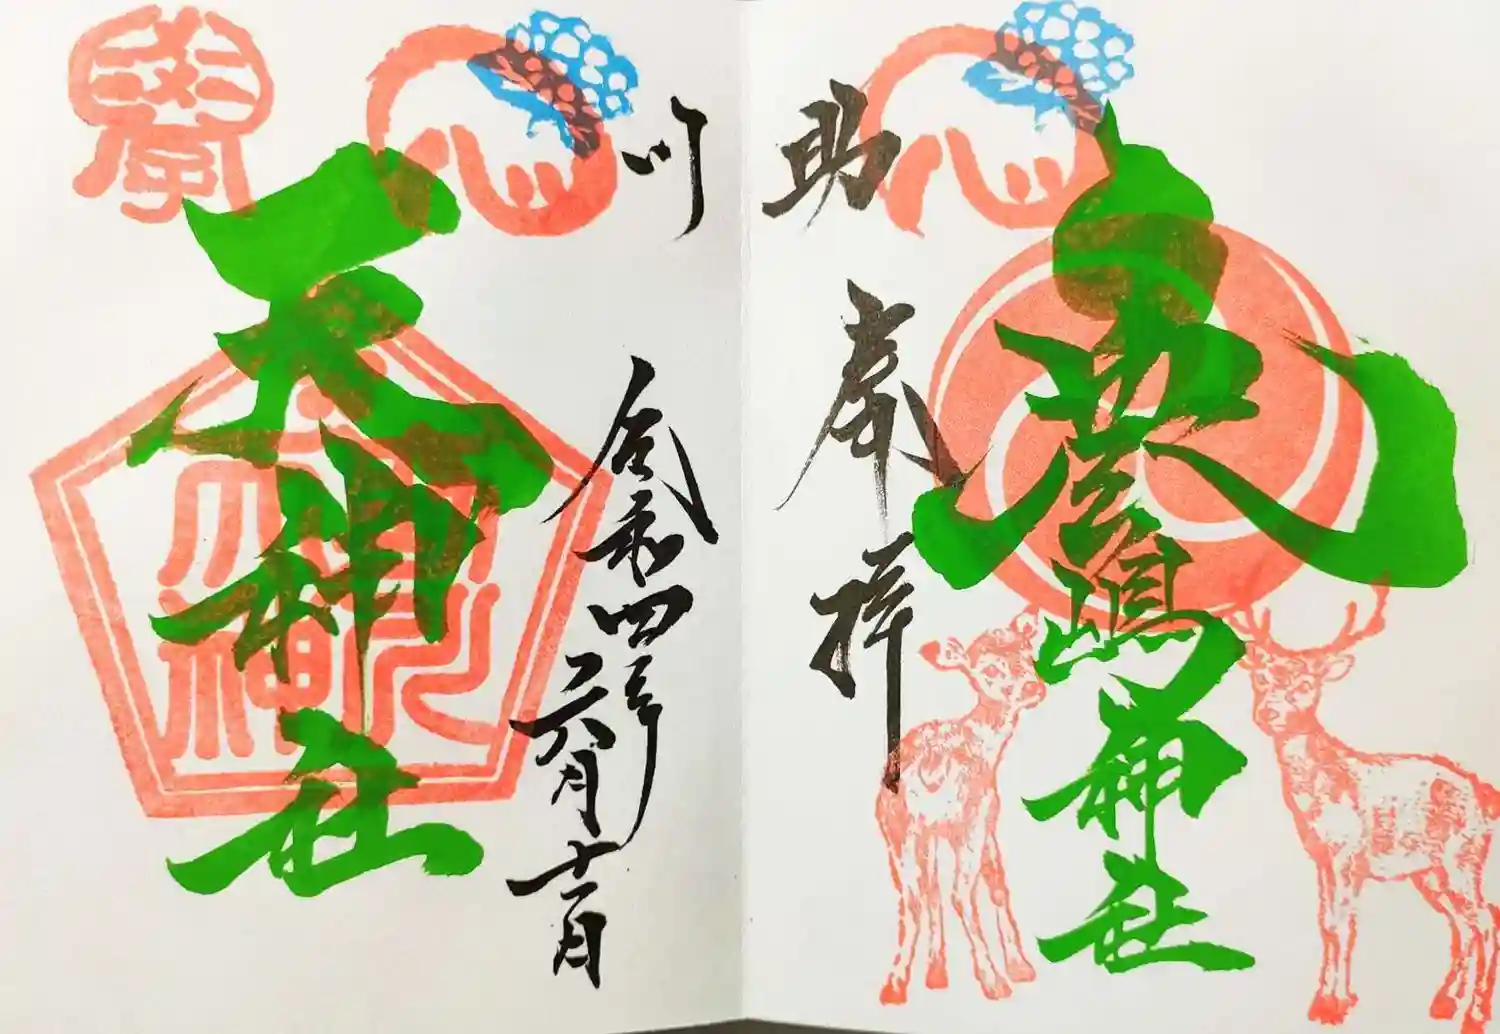 鹿嶋神社
助
奉拝
川
令和四年六月十一日
天神社
學